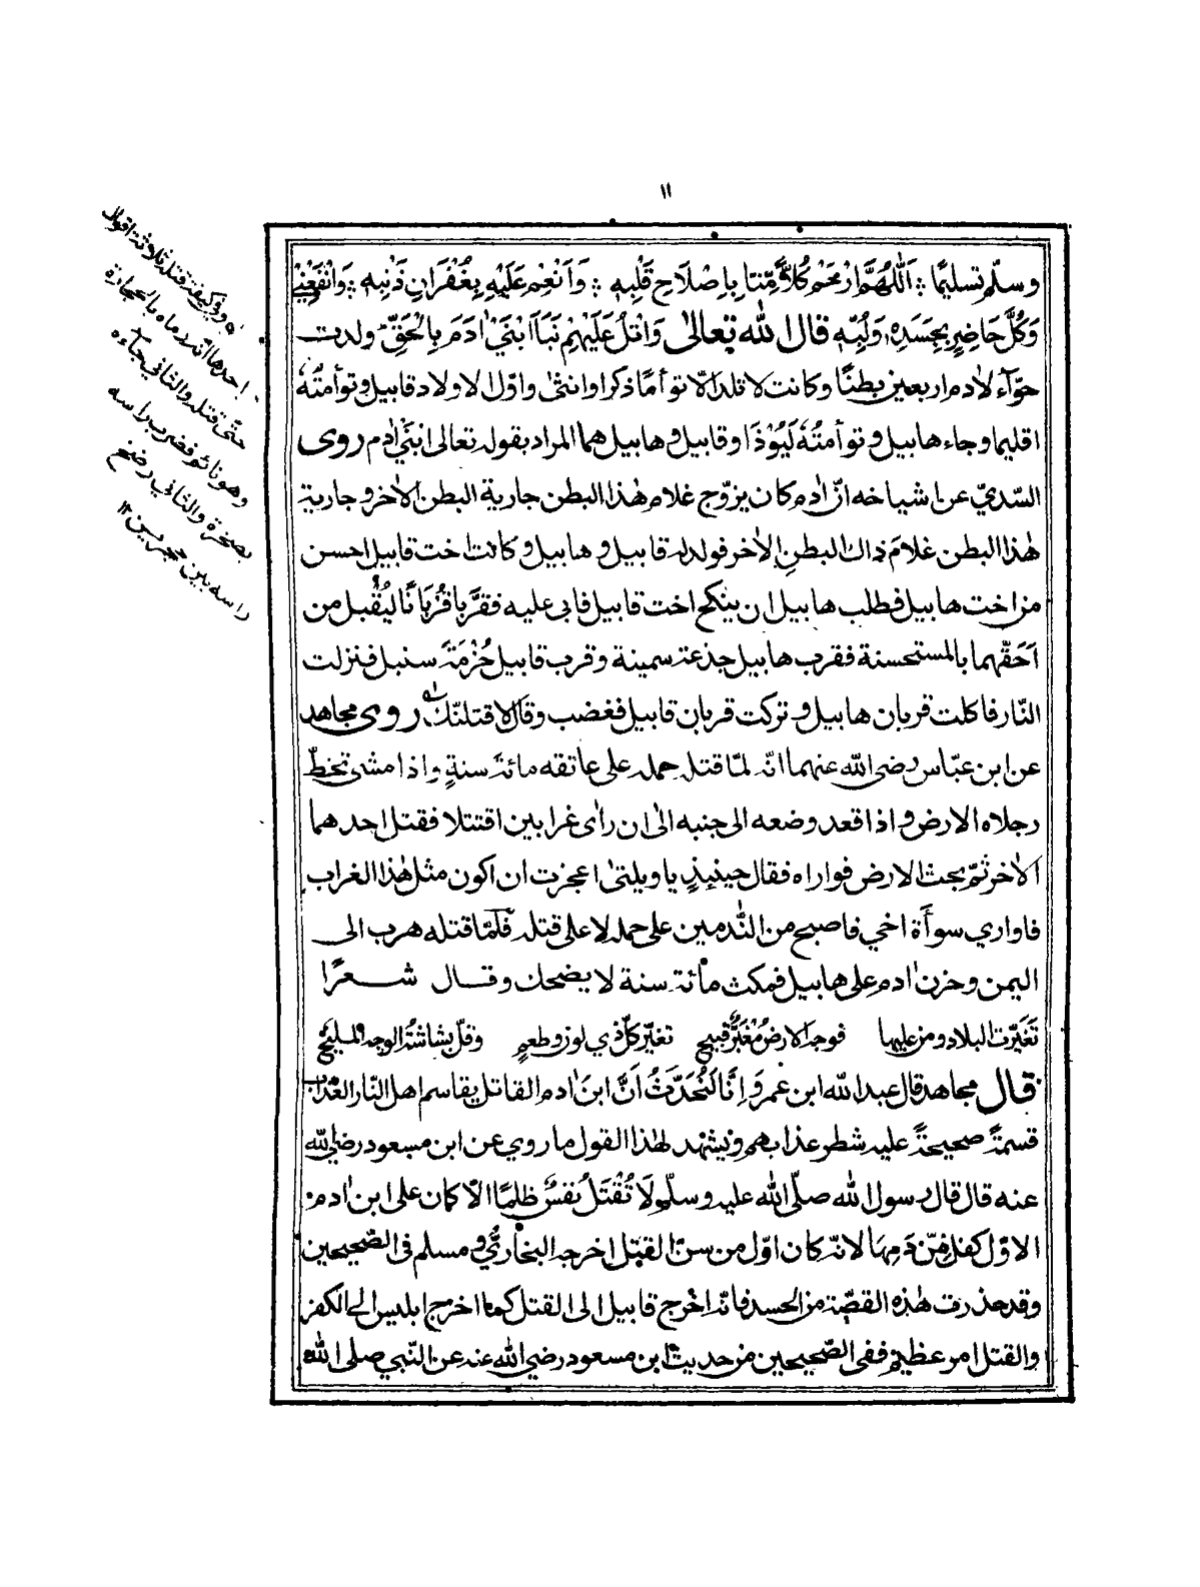 ١١
وسلّم تسليمًا ؞ اَللّٰهُمَّ ارْحَمْ كُلاًّ مِّنَّا بِاِصْلَاحِ قَلْبِهٖ ؞ وَاَنْعِمْ عَلَيْهِ بِغُفْرَانِ ذَنْبِهٖ ؞ وَانْفَعْنِيْ
وَكُلَّ حَاضِرٍ بِجَسَدِهٖ وَلُبِّهٖ قال الله تعالىٰ وَاتْلُ عَلَيْهِمْ نَبَاَ ابْنَيْ اٰدَمَ بِالْحَقِّ ولدت
حوّآء لاٰدم اربعين بطنًا وكانت لا تلد الّا توأمًا ذكرا وانثىٰ واوّل الاولاد قابيل وتوأمتُهٗ
اقليما وجاء هابيل وتوأمتُهٗ لَيُوْذَا وقابيل وهابيل هما المراد بقوله تعالى ابنَيْ اٰدم روى
السّديّ عن اشياخه انّ اٰدم كان يزوّج غلام هٰذا البطن جارية البطن الاٰخر وجارية
هٰذا البطن غلامَ ذاك البطنِ الاٰخر فولد له قابيل وهابيل وكانت اخت قابيل احسن
من اخت هابيل فطلب هابيل ان ينكح اخت قابيل فابى عليه فقرّبا قُرْبَانًا ليُقْبل من
اَحَقِّهما بالمستحسنة فقرب هابيل جذعة سمينة وقرب قابيل حُزْمَةَ سنبل فنزلت
النّار فاكلت قربان هابيل وتركت قربان قابيل فغضب وقال لاقتلنّك روى مجاهد
عن ابن عبّاس رضى الله عنهما انّه لمّا قتله حمله على عاتقه مائة سنةٍ واذا مشى تخطّ
رجلاه الارض واذا قعد وضعه الى جنبه الىٰ ان راٰى غرابين اقتتلا فقتل احدهما
الاٰخر ثمّ بحث الارض فواراه فقال حينئذٍ يا ويلتىٰ اعجزت ان اكون مثل هٰذا الغراب
فاواري سوأة اخي فاصبح من النّٰدمين على حمله لا على قتله فلمّا قتله هرب الى
اليمن وحزن اٰدم على هابيل فمكث مائة سنة لا يضحك وقال شعرًا
تَغَيَّرَت البلاد ومن عليها فوجه الارض مُغْبَرٌّ قبيح تغيّر كلّ ذي لون وطعمٍ وقلّ بشاشةُ الوجه المليح
قال مجاهد قال عبد الله ابن عمر وَاِنَّا لَنُحَدِّثُ اَنَّ ابنَ اٰدم القاتل يقاسم اهل النّار العذاب
قسمةً صحيحةً عليه شطر عذابهم ويشهد لهٰذا القول ما روي عن ابن مسعود رضي الله
عنه قال قال رسول الله صلّى الله عليه وسلّم لَا تُقْتَلُ نفسٌ ظلمًا الّا كان على ابن اٰدم
الاوّل كفل مِّنْ دَمِهَا لانّه كان اوّل من سنّ القتل اخرجه البخاريّ ومسلم فى الصّحيحين
وقد حذرت هٰذه القصّة من الحسد فانّه اخرج قابيل الى القتل كما اخرج ابليس الى الكفر
والقتل امر عظيم ففى الصّحيحين من حديث ابن مسعود رضي الله عنه عن النّبي صلى الله
وفى كيفية قتله ثلاثة اقوال
احدها انه رماه بالحجارة
حتّى قتله والثاني جآءه
وهو نائم فضرب راسه
بصخرة والثاني رضخ
راسه بين حجرين ١٢